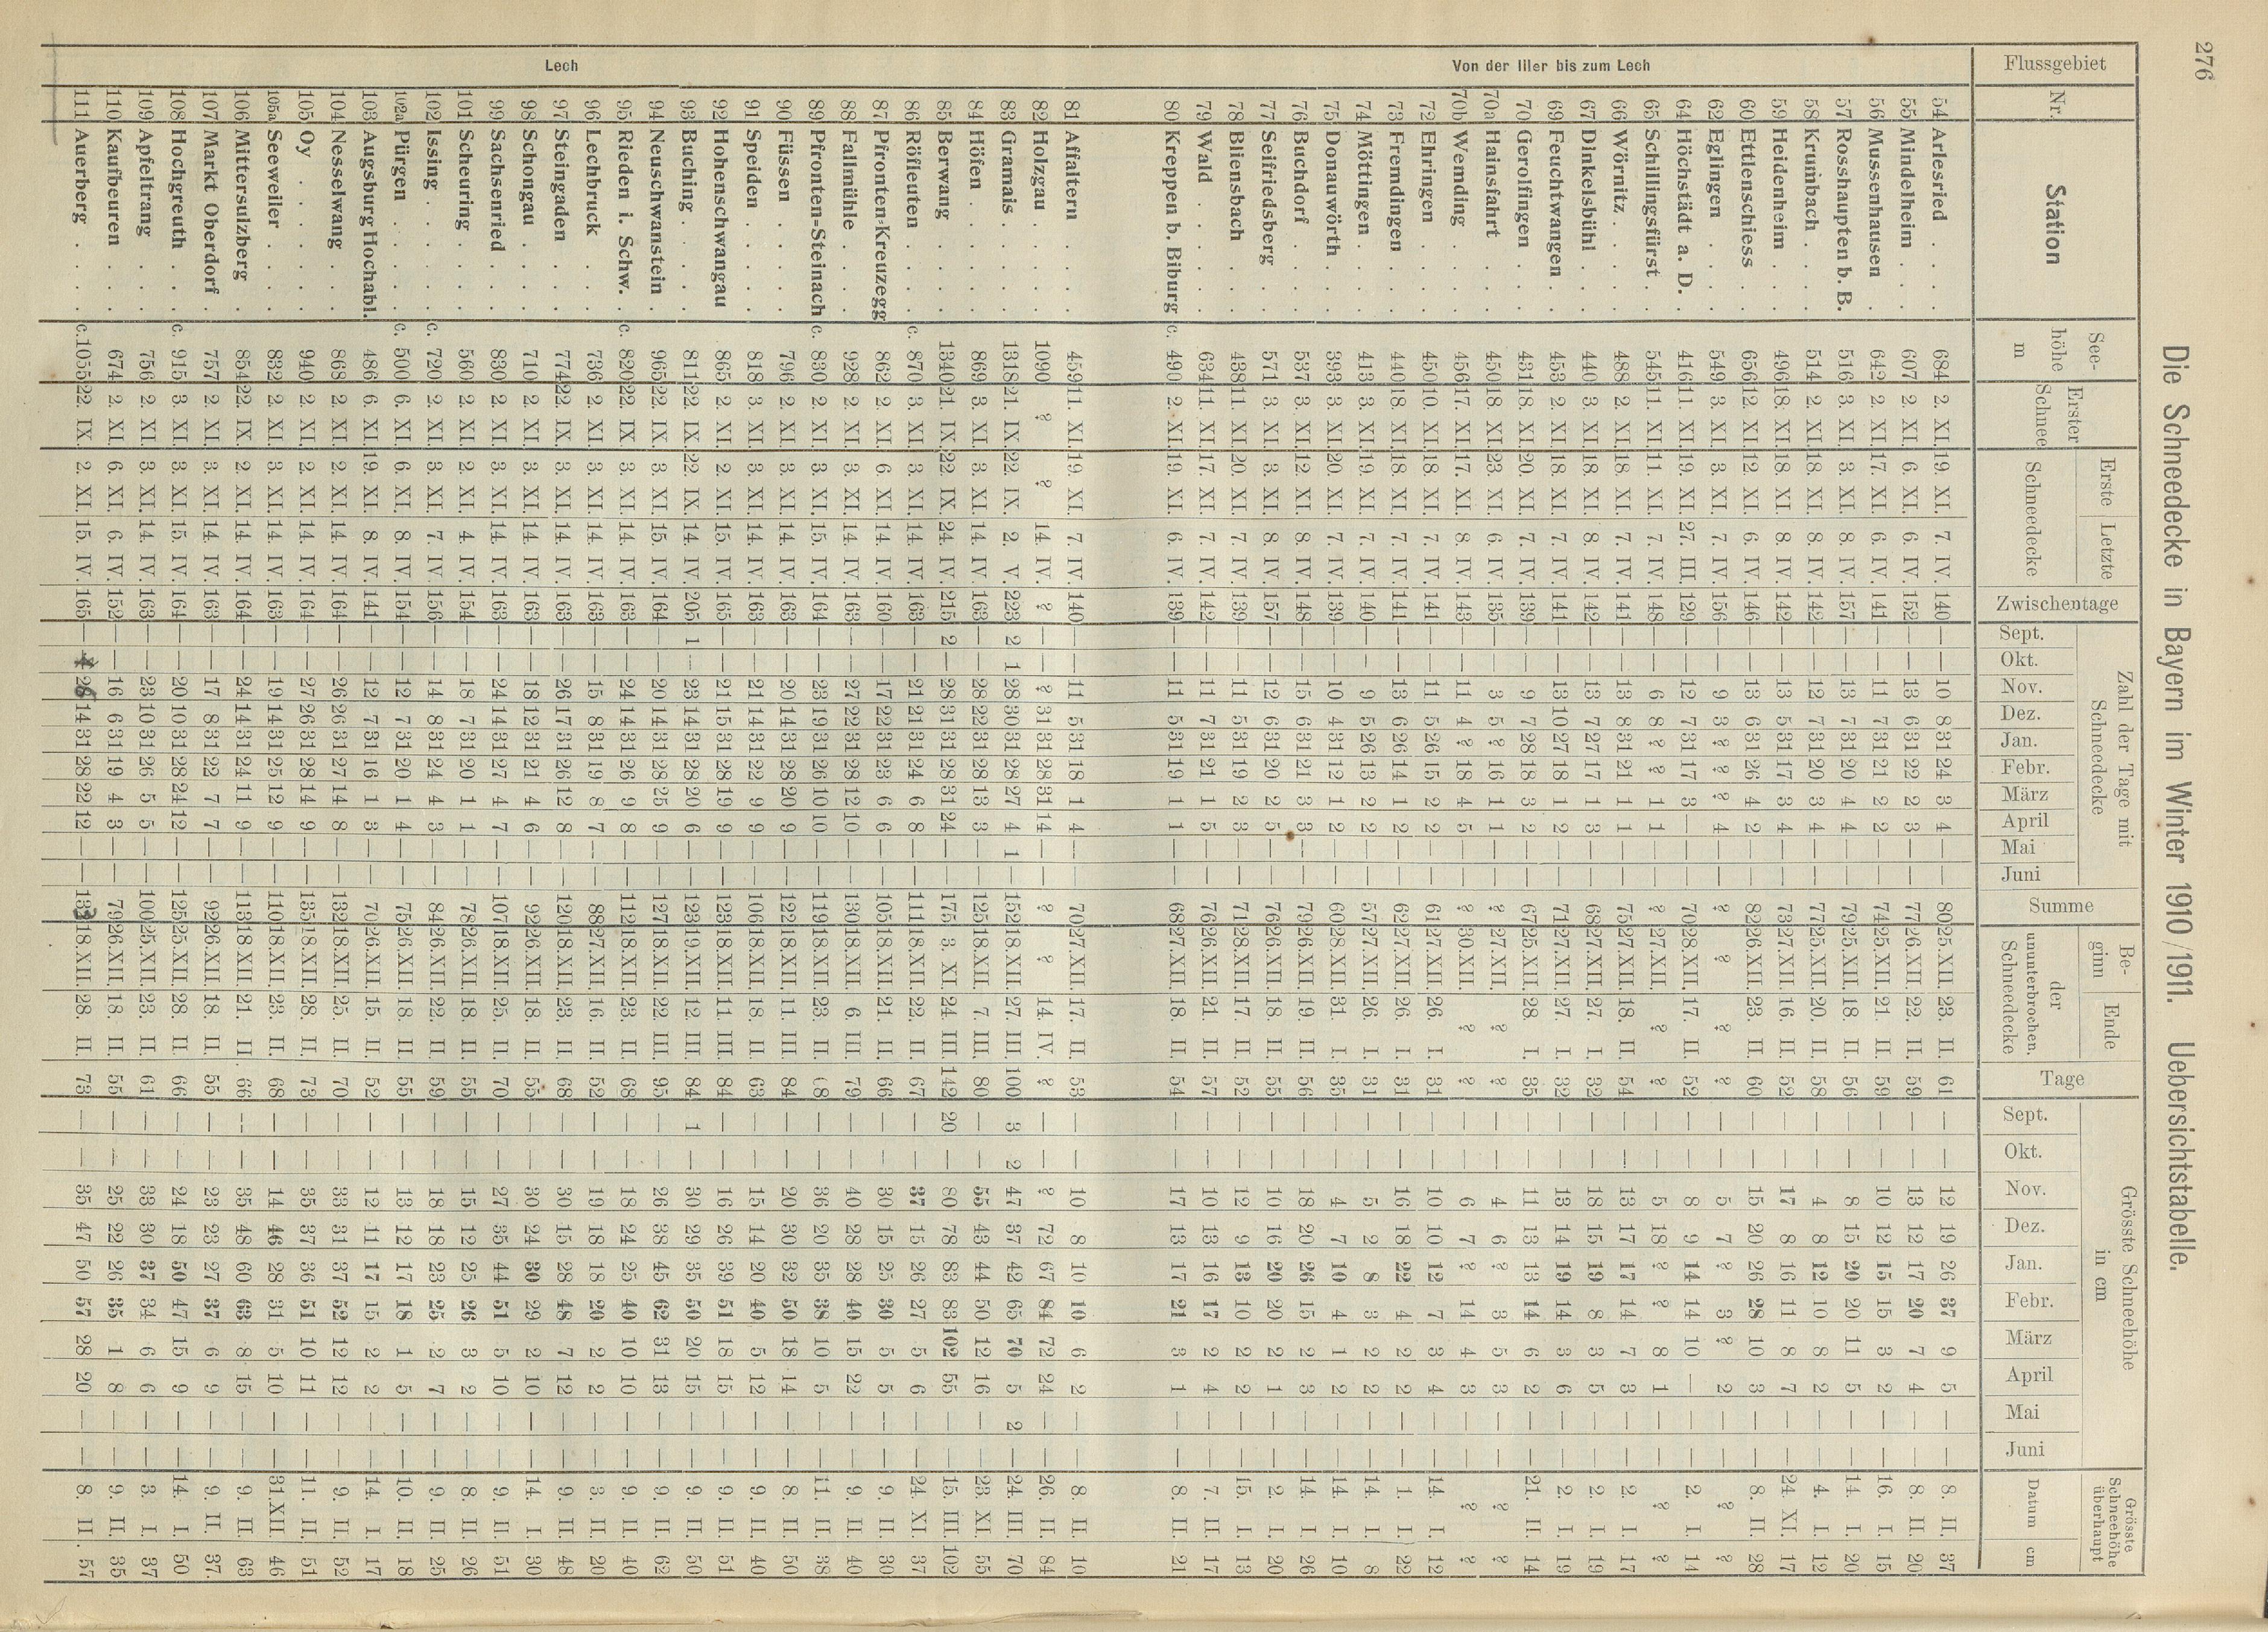 276
Die Schneedecke in Bayern im Winter 1910/1911. Uebersichtstabelle.
Flussgebiet Nr. Station See-höhe m Erster Schnee Erste Letzte Schneedecke Zwischentage Zahl der Tage mit Schneedecke Summe Be-ginn Ende der ununterbrochen. Schneedecke Tage Grösste Schneehöhe in cm Grösste Schneehöhe überhaupt
Sept. Okt. Nov. Dez. Jan. Febr. März April Mai Juni Sept. Okt. Nov. Dez. Jan. Febr. März April Mai Juni Datum cm
Von der Iller bis zum Lech
54 Arlesried . . . 684 2. XI. 19. XI. 7. IV. 140 — — 10 8 31 24 3 4 — — 80 25.XII. 23. II. 61 — — 12 19 26 37 9 5 — — 8. II. 37
55 Mindelheim . . 607 2. XI. 6. XI. 6. IV. 152 — — 13 6 31 22 2 3 — — 77 26.XII. 22. II. 59 — — 13 12 17 20 7 4 — — 8. II. 20
56 Mussenhausen . 642 2. XI. 17. XI. 6. IV. 141 — — 11 7 31 21 2 2 — — 74 25.XII. 21. II. 59 — — 10 12 15 15 3 2 — — 16. I. 15
57 Rosshaupten b. B. 516 3. XI. 3. XI. 8. IV. 157 — — 13 7 31 20 4 4 — — 79 25.XII. 18. II. 56 — — 8 15 20 20 11 5 — — 14. I. 20
58 Krumbach . . . 514 2. XI. 18. XI. 8. IV. 142 — — 12 7 31 20 3 4 — — 77 25.XII. 20. II. 58 — — 4 8 12 10 8 2 — — 4. I. 12
59 Heidenheim . . 496 18. XI. 18. XI. 8. IV. 142 — — 13 5 31 17 3 4 — — 73 27.XII. 16. II. 52 — — 17 8 16 11 8 7 — — 24. XI. 17
60 Ettlenschiess . . 656 12. XI. 12. XI. 6. IV. 146 — — 13 6 31 26 4 2 — — 82 26.XII. 23. II. 60 — — 15 20 26 28 10 3 — — 8. II. 28
62 Eglingen . . . 549 3. XI. 3. XI. 7. IV. 156 — — 9 3 ? ? ? 4 — — ? ? ? ? — — 5 7 ? 3 ? 2 — — ? ?
64 Höchstädt a. D. 416 11. XI. 19. XI. 27. III. 129 — — 12 7 31 17 3 — — — 70 28.XII. 17. II. 52 — — 8 9 14 14 10 — — — 2. I. 14
65 Schillingsfürst . 545 11. XI. 11. XI. 7. IV. 148 — — 6 8 ? ? 1 1 — — ? 27.XII. ? ? — — 5 18 ? ? 8 1 — — ? ?
66 Wörnitz . . . 488 2. XI. 18. XI. 7. IV. 141 — — 13 8 31 21 1 1 — — 75 27.XII. 18. II. 54 — — 13 17 17 14 7 3 — — 2. I. 17
67 Dinkelsbühl . . 440 3. XI. 18. XI. 8. IV. 142 — — 13 7 27 17 1 3 — — 68 27.XII. 27. I. 32 — — 18 15 19 8 3 5 — — 2. I. 19
69 Feuchtwangen . 453 2. XI. 18. XI. 7. IV. 141 — — 13 10 27 18 1 2 — — 71 27.XII. 27. I. 32 — — 13 14 19 14 3 6 — — 2. I. 19
70 Gerolfingen . . 431 18. XI. 20. XI. 7. IV. 139 — — 9 7 28 18 3 2 — — 67 25.XII. 28. I. 35 — — 11 13 13 14 6 2 — — 21. II. 14
70a Hainsfahrt . . 450 18. XI. 23. XI. 6. IV. 135 — — 3 5 ? 16 1 1 — — ? 27.XII. ? ? — — 4 6 ? 3 5 3 — — ? ?
70b Wemding . . . 456 17. XI. 17. XI. 8. IV. 143 — — 11 4 ? 18 4 5 — — ? 30.XII. ? ? — — 6 7 ? 14 4 3 — — ? ?
72 Ehringen . . . 450 10. XI. 18. XI. 7. IV. 141 — — 11 5 26 15 2 2 — — 61 27.XII. 26. I. 31 — — 10 10 12 7 3 4 — — 14. I. 12
73 Fremdingen . . 440 18. XI. 18. XI. 7. IV. 141 — — 13 6 26 14 1 2 — — 62 27.XII. 26. I. 31 — — 16 18 22 4 2 2 — — 1. I. 22
74 Möttingen . . 413 3. XI. 19. XI. 7. IV. 140 — — 9 5 26 13 2 2 — — 57 27.XII. 26. I. 31 — — 5 2 8 3 2 2 — — 14. I. 8
75 Donauwörth . . 393 3. XI. 20. XI. 7. IV. 139 — — 10 4 31 12 1 2 — — 60 28.XII. 31. I. 35 — — 4 7 10 4 1 2 — — 14. I. 10
76 Buchdorf . . . 537 3. XI. 12. XI. 8. IV. 148 — — 15 6 31 21 3 3 — — 79 26.XII. 19. II. 56 — — 18 20 26 15 2 3 — — 14. I 26
77 Seifriedsberg . . 571 3. XI. 3. XI. 8. IV. 157 — — 12 6 31 20 2 5 — — 76 26.XII. 18. II. 55 — — 10 16 20 20 2 1 — — 2. I. 20
78 Bliensbach . . 438 11. XI. 20. XI. 7. IV. 139 — — 11 5 31 19 2 3 — — 71 28.XII. 17. II. 52 — — 12 9 13 10 2 2 — — 15. I. 13
79 Wald . . . . 634 11. XI. 17. XI. 7. IV. 142 — — 11 7 31 21 1 5 — — 76 26.XII. 21. II. 57 — — 10 13 16 17 2 4 — — 7. II. 17
80 Kreppen b. Biburg c. 490 2. XI. 19. XI. 6. IV. 139 — — 11 5 31 19 1 1 — — 68 27.XII. 18. II. 54 — — 17 13 17 21 3 1 — — 8. II. 21
81 Affaltern . . . 459 11. XI. 19. XI. 7. IV. 140 — — 11 5 31 18 1 4 — — 70 27.XII. 17. II. 53 — — 10 8 10 10 6 2 — — 8. II. 10
Lech
82 Holzgau . . . 1090 ? ? 14. IV. ? — — ? 31 31 28 31 14 — — ? ? 14. IV. ? — — ? 72 67 84 72 24 — — 26. II. 84
83 Gramais . . . 1318 21. IX. 22. IX. 2. V. 223 2 1 28 30 31 28 27 4 1 — 152 18.XII. 27. III. 100 3 2 47 37 42 65 70 5 2 — 24. III. 70
84 Höfen . . . . 869 3. XI. 3. XI. 14. IV. 163 — — 28 22 31 28 13 3 — — 125 18.XII. 7. III. 80 — — 55 43 44 50 12 16 — — 23. XI. 55
85 Berwang . . . 1340 21. IX. 22. IX. 24. IV. 215 2 — 28 31 31 28 31 24 — — 175 3. XI. 24. III. 142 20 — 80 78 83 83 102 55 — — 15. III. 102
86 Röfleuten . . . c. 870 3. XI. 3. XI. 14. IV. 163 — — 21 21 31 24 6 8 — — 111 18.XII. 22. II. 67 — — 37 15 26 27 5 6 — — 24. XI. 37
87 Pfronten-Kreuzegg 862 2. XI. 6. XI. 14. IV. 160 — — 17 22 31 23 6 6 — — 105 18.XII. 21. II. 66 — — 30 15 25 30 5 5 — — 9. II. 30
88 Fallmühle . . . 928 2. XI. 3. XI. 14. IV. 163 — — 27 22 31 28 12 10 — — 130 18.XII. 6. III. 79 — — 40 28 28 40 15 22 — — 9. II. 40
89 Pfronten-Steinach c. 830 2. XI. 3. XI. 15. IV. 164 — — 23 19 31 26 10 10 — — 119 18.XII. 23. II. 68 — — 36 20 35 38 10 5 — — 11. II. 38
90 Füssen . . . . 796 2. XI. 3. XI. 14. IV. 163 — — 20 14 31 28 20 9 — — 122 18.XII. 11. III. 84 — — 20 30 32 50 18 14 — — 8. II. 50
91 Speiden . . . 818 3. XI. 3. XI. 14. IV. 163 — — 21 14 31 22 9 9 — — 106 18.XII. 18. II. 63 — — 15 14 20 40 5 12 — — 9. II. 40
92 Hohenschwangau 865 2. XI. 2. XI. 15. IV. 165 — — 21 15 31 28 19 9 — — 123 18.XII. 11. III. 84 — — 16 26 39 51 18 15 — — 9. II. 51
93 Buching . . . 811 22. IX. 22. IX. 14. IV. 205 1 — 23 14 31 28 20 6 — — 123 19.XII. 12. III. 84 1 — 30 29 35 50 20 15 — — 9. II. 50
94 Neuschwanstein 965 22. IX. 3. XI. 15. IV. 164 — — 20 14 31 28 25 9 — — 127 18.XII. 22. III. 95 — — 26 38 45 62 31 13 — — 9. II. 62
95 Rieden i. Schw. c. 820 22. IX. 3. XI. 14. IV. 163 — — 24 14 31 26 9 8 — — 112 18.XII. 23. II. 68 — — 18 24 25 40 10 10 — — 9. II. 40
96 Lechbruck . . 736 2. XI. 3. XI. 14. IV. 163 — — 15 8 31 19 8 7 — — 88 27.XII. 16. II. 52 — — 19 18 18 20 2 2 — — 3. II. 20
97 Steingaden . . 774 22. IX. 3. XI. 14. IV. 163 — — 26 17 31 26 12 8 — — 120 18.XII. 23. II. 68 — — 30 15 28 48 7 12 — — 9. II. 48
98 Schongau . . . 710 2. XI. 3. XI. 14. IV. 163 — — 18 12 31 21 4 6 — — 92 26.XII. 18. II. 55 — — 30 24 30 29 2 10 — — 14. I. 30
99 Sachsenried . . 830 2. XI. 3. XI. 14. IV. 163 — — 24 14 31 27 4 7 — — 107 18.XII. 25. II. 70 — — 27 35 44 51 5 10 — — 9. II. 51
101 Scheuring . . . 560 2. XI. 2. XI. 4. IV. 154 — — 18 7 31 20 1 1 — — 78 26.XII. 18. II. 55 — — 15 12 25 26 3 2 — — 8. II. 26
102 Issing . . . . c. 720 2. XI. 3. XI. 7. IV. 156 — — 14 8 31 24 4 3 — — 84 26.XII. 22. II. 59 — — 18 18 23 25 2 7 — — 9. II. 25
102a Pürgen . . . . c. 500 6. XI. 6. XI. 8. IV. 154 — — 12 7 31 20 1 4 — — 75 26.XII. 18. II. 55 — — 13 12 17 18 1 5 — — 10. II. 18
103 Augsburg Hochabl. 486 6. XI. 19. XI. 8. IV. 141 — — 12 7 31 16 1 3 — — 70 26.XII. 15. II. 52 — — 12 11 17 15 2 2 — — 14. I. 17
104 Nesselwang . . 868 2. XI. 2. XI. 14. IV. 164 — — 26 26 31 27 14 8 — — 132 18.XII. 25. II. 70 — — 33 31 37 52 12 12 — — 9. II. 52
105 Oy . . . . . 940 2. XI. 2. XI. 14. IV. 164 — — 27 26 31 28 14 9 — — 135 18.XII. 28. II. 73 — — 35 37 36 51 10 11 — — 11. II. 51
105a Seeweiler . . . 832 2. XI. 3. XI. 14. IV. 163 — — 19 14 31 25 12 9 — — 110 18.XII. 23. II. 68 — — 14 46 28 31 5 10 — — 31.XII. 46
106 Mittersulzberg . 854 22. IX. 2. XI. 14. IV. 164 — — 24 14 31 24 11 9 — — 113 18 XII. 21. II 66 — — 35 48 60 63 8 15 — — 9. II. 63
107 Markt Oberdorf . 757 2. XI. 3. XI. 14. IV. 163 — — 17 8 31 22 7 7 — — 92 26.XII. 18. II. 55 — — 23 23 27 37 6 9 — — 9. II. 37.
108 Hochgreuth . . c. 915 3. XI. 3. XI. 15. IV. 164 — — 20 10 31 28 24 12 — — 125 25.XII. 28. II 66 — — 24 18 50 47 15 9 — — 14. I. 50
109 Apfeltrang . . 756 2. XI. 3. XI. 14. IV. 163 — — 23 10 31 26 5 5 — — 100 25.XII. 23. II. 61 — — 33 30 37 34 6 6 — — 3. I. 37
110 Kaufbeuren . . 674 2. XI. 6. XI. 6. IV. 152 — — 16 6 31 19 4 3 — — 79 26.XII. 18. II. 55 — — 25 22 26 35 1 8 — — 9. II. 35
111 Auerberg . . . c. 1055 22. IX. 2. XI. 15. IV. 165 — 26 14 31 28 22 12 — — 133 18.XII. 28. II. 73 — — 35 47 50 57 28 20 — — 8. II. 57